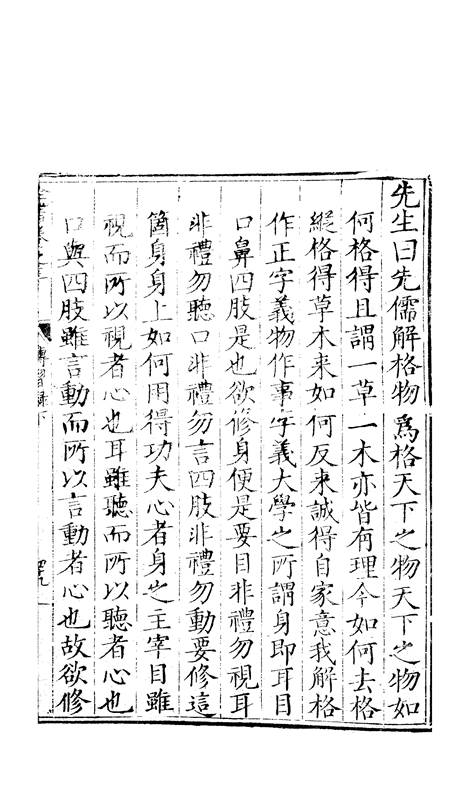 先生曰先儒解格物爲格天下之物天下之物如
何格得且謂一草一木亦皆有理今如何去格
縱格得草木来如何反来誠得自家意我解格
作正字義物作事字義大學之所謂身即耳目
口鼻四肢是也欲修身便是要目非禮勿視耳
非禮勿聽口非禮勿言四肢非禮勿動要修這
箇身身上如何用得功夫心者身之主宰目雖
視而所以視者心也耳雖聽而所以聽者心也
口與四肢雖言動而所以言動者心也故欲修
傳習録下